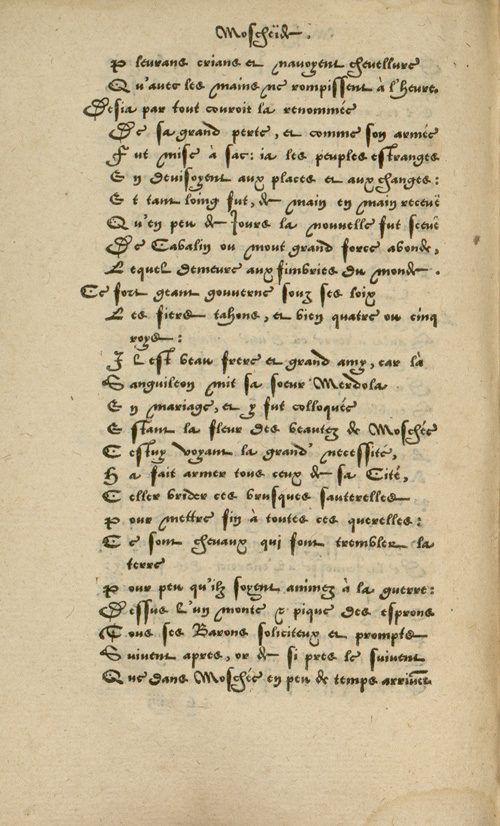 Moscheide.
P leurans crians et n'avoyent chevellure
Q u'avec les mains ne rompissent à l'heure.
Desia par tout couroit la renommée
D e sa grand perte, et comme son armée
F ut mise à sac: ia les peuples estranges
E n devisoyent aux places et aux changes:
E t tant loing fut, de main en main receuë
Q u'en peu de Jours la nouvelle fut sceuë
D e Cabalin ou mout grand force abonde,
L equel demeure aux fimbries du monde.
Ce fort geant gouverne souz ses loix
L es fiers tahons, et bien quatre ou cinq
roys:
I l est beau frere et grand amy, car la
S anguileon mit sa soeur Merdola
E n mariage, et y fut colloquée
E stant la fleur des beautez de Moschée
C estuy voyant la grand' necessité,
H a fait armer tous ceux de sa Cité,
S eller brider ces brusques sauterelles
P our mettre fin à toutes ces querelles:
C e sont chevaux qui font trembler la
terre
P our peu qu'ilz soyent animez à la guerre:
D essus l'un monte & pique des esprons
T ous ses Barons soliciteux et prompts
S uivent apres, or de si pres le suivent
Q ue dans Moschée en peu de temps arrivēt.